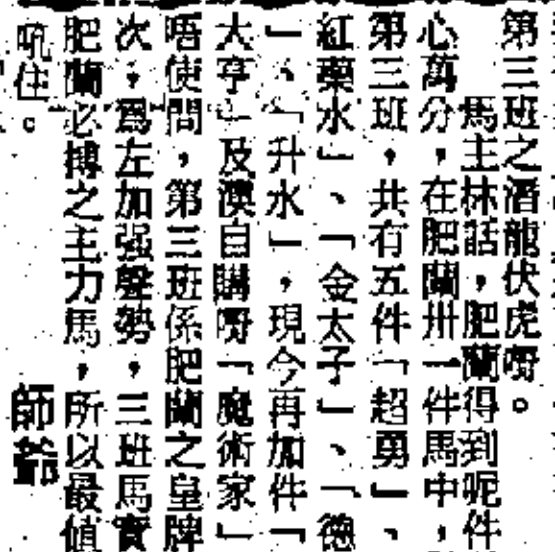 第三班之潛龍伏虎嘢。
馬主林話，肥蘭得到呢件
心萬分，在肥蘭卅一件馬中，
第三班，共有五件「超勇」、
紅藥水」、「金太子」、「德
」、「升水」，現今再加件「
大亨」及澳自購嘢「魔術家」
唔使問，第三班係肥蘭之皇牌
次，為左加强聲勢，三班馬實
肥蘭必搏之主力馬，所以最値
吼住。
師爺